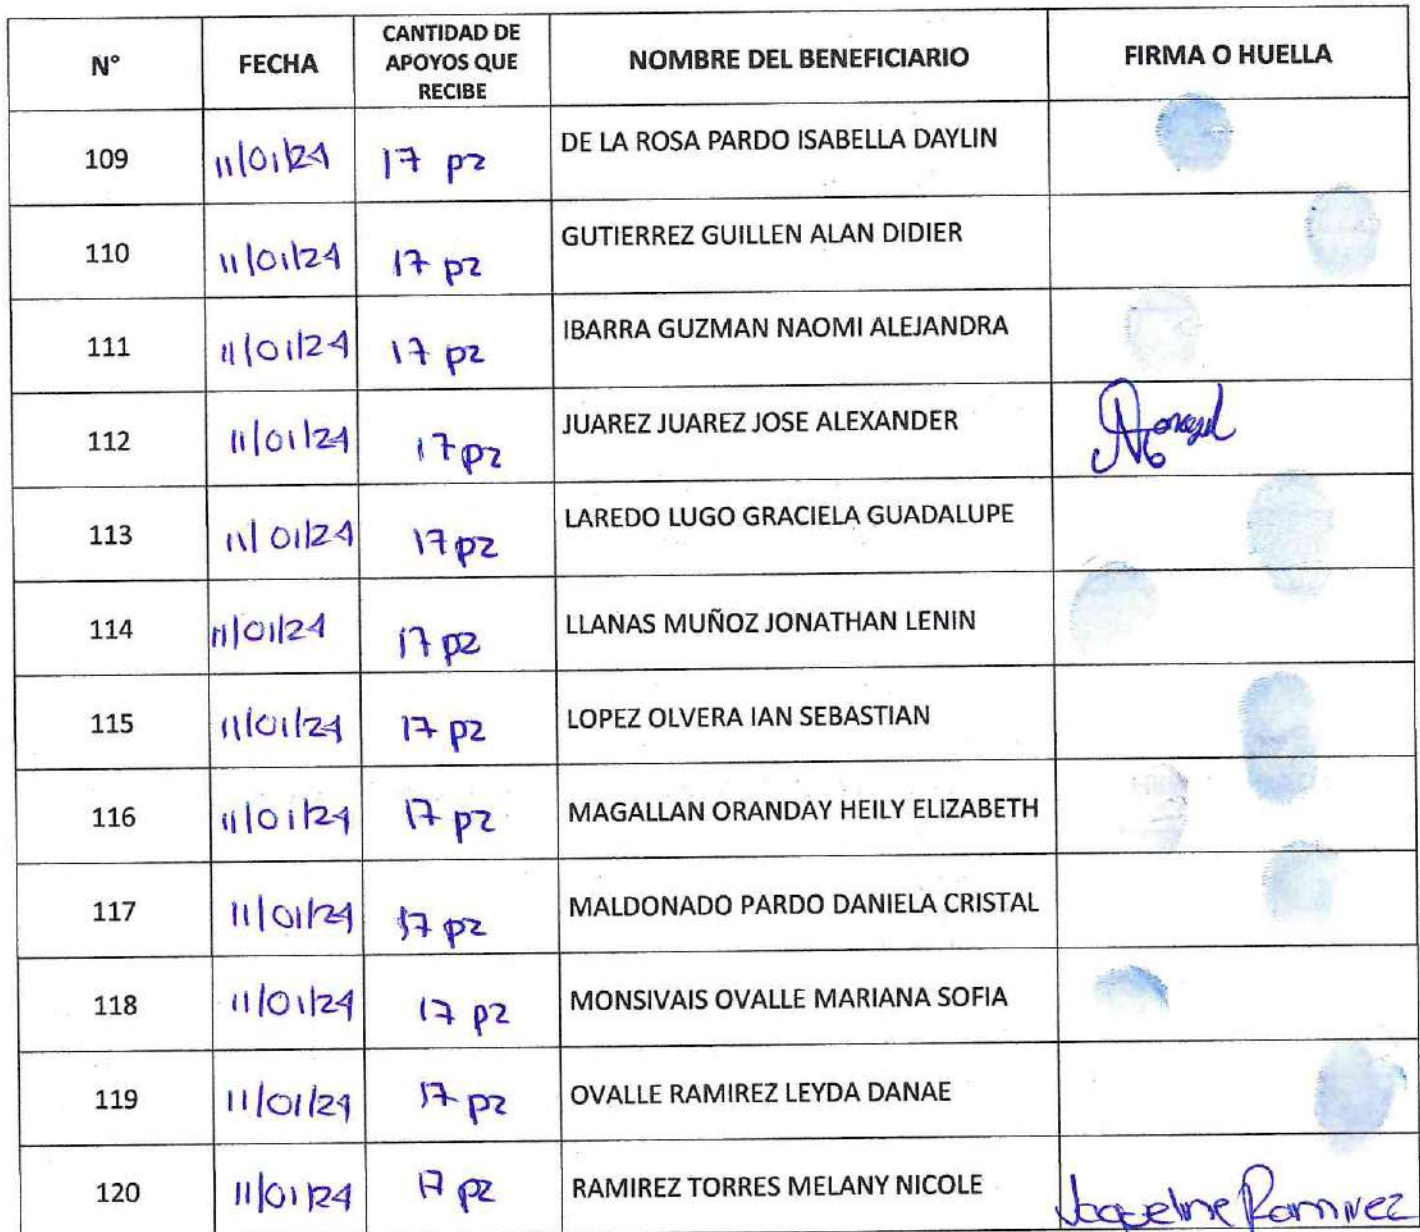 N° FECHA CANTIDAD DE APOYOS QUE RECIBE NOMBRE DEL BENEFICIARIO FIRMA O HUELLA
109 11/01/24 17 pz DE LA ROSA PARDO ISABELLA DAYLIN
110 11/01/24 17 pz GUTIERREZ GUILLEN ALAN DIDIER
111 11/01/24 17 pz IBARRA GUZMAN NAOMI ALEJANDRA
112 11/01/24 17 pz JUAREZ JUAREZ JOSE ALEXANDER
113 11/01/24 17 pz LAREDO LUGO GRACIELA GUADALUPE
114 11/01/24 17 pz LLANAS MUÑOZ JONATHAN LENIN
115 11/01/24 17 pz LOPEZ OLVERA IAN SEBASTIAN
116 11/01/24 17 pz MAGALLAN ORANDAY HEILY ELIZABETH
117 11/01/24 17 pz MALDONADO PARDO DANIELA CRISTAL
118 11/01/24 17 pz MONSIVAIS OVALLE MARIANA SOFIA
119 11/01/24 17 pz OVALLE RAMIREZ LEYDA DANAE
120 11/01/24 17 pz RAMIREZ TORRES MELANY NICOLE Jaqueline Ramirez